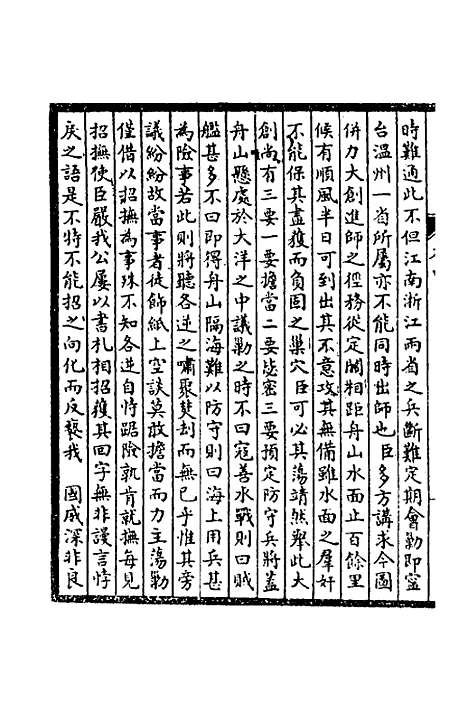 時難適此不但江南浙江兩省之兵斷難定期會勦即寧
台溫州一省所屬亦不能同時出師也臣多方講求今圖
併力大創進師之徑務從定關相距舟山水面止百餘里
候有順風半日可到出其不意攻其無備雖水面之羣奸
不能保其盡獲而負固之巢穴臣可必其蕩靖然舉此大
創尚有三要一要擔當二要毖密三要預定防守兵將蓋
舟山懸處於大洋之中議勦之時不曰寇善水戰則曰賊
艦甚多不曰即得舟山隔海難以防守則曰海上用兵甚
為險事若此則將聽各逆之嘯聚焚刦而無已乎惟其旁
議紛紛故當事者徒餙紙上空談莫敢擔當而力主蕩勦
僅借以招撫為事殊不知各逆自恃踞險孰肯就撫每見
招撫使臣嚴我公屢以書札相招獲其回字無非謾言悖
戾之語是不特不能招之向化而反褻我 國威深非良